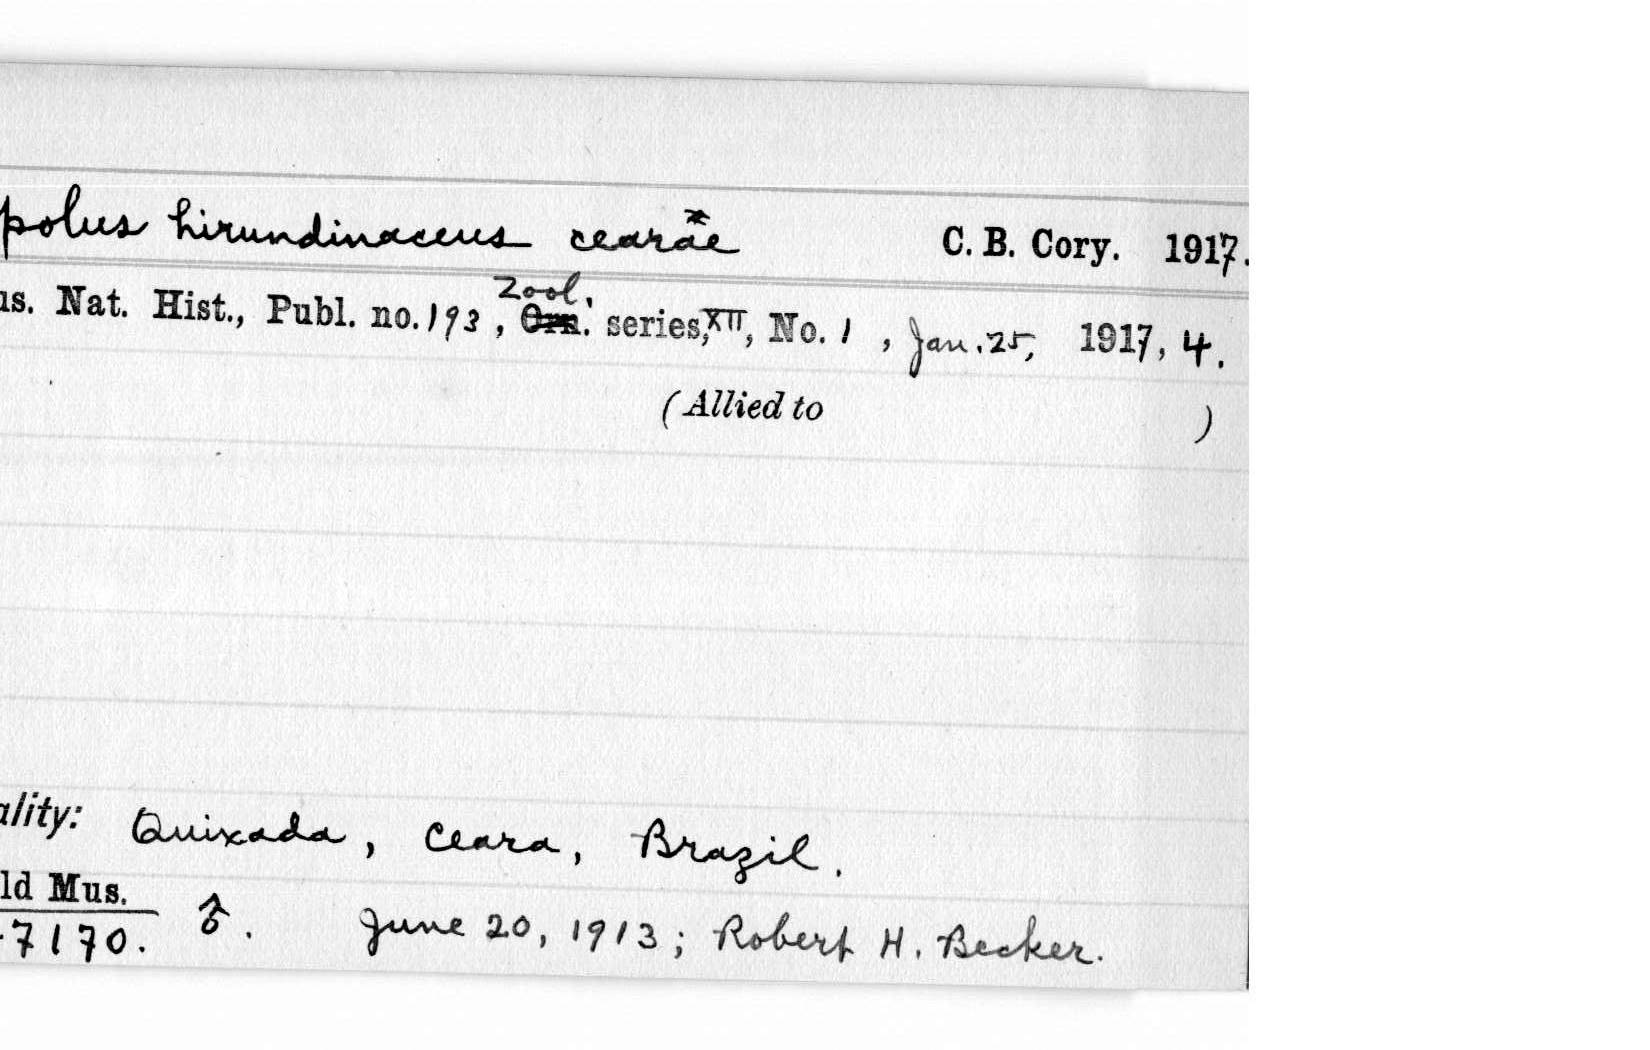 polus hirundinaceus cearae C. B. Cory. 1917.
us. Nat. Hist., Publ. no. 193, Zool. Orn. series, XII, No. 1, Jan. 25, 1917, 4.
(Allied to )
ality: Quixada, Ceara, Brazil.
ld Mus.
7170. ♂. June 20, 1913; Robert H. Becker.